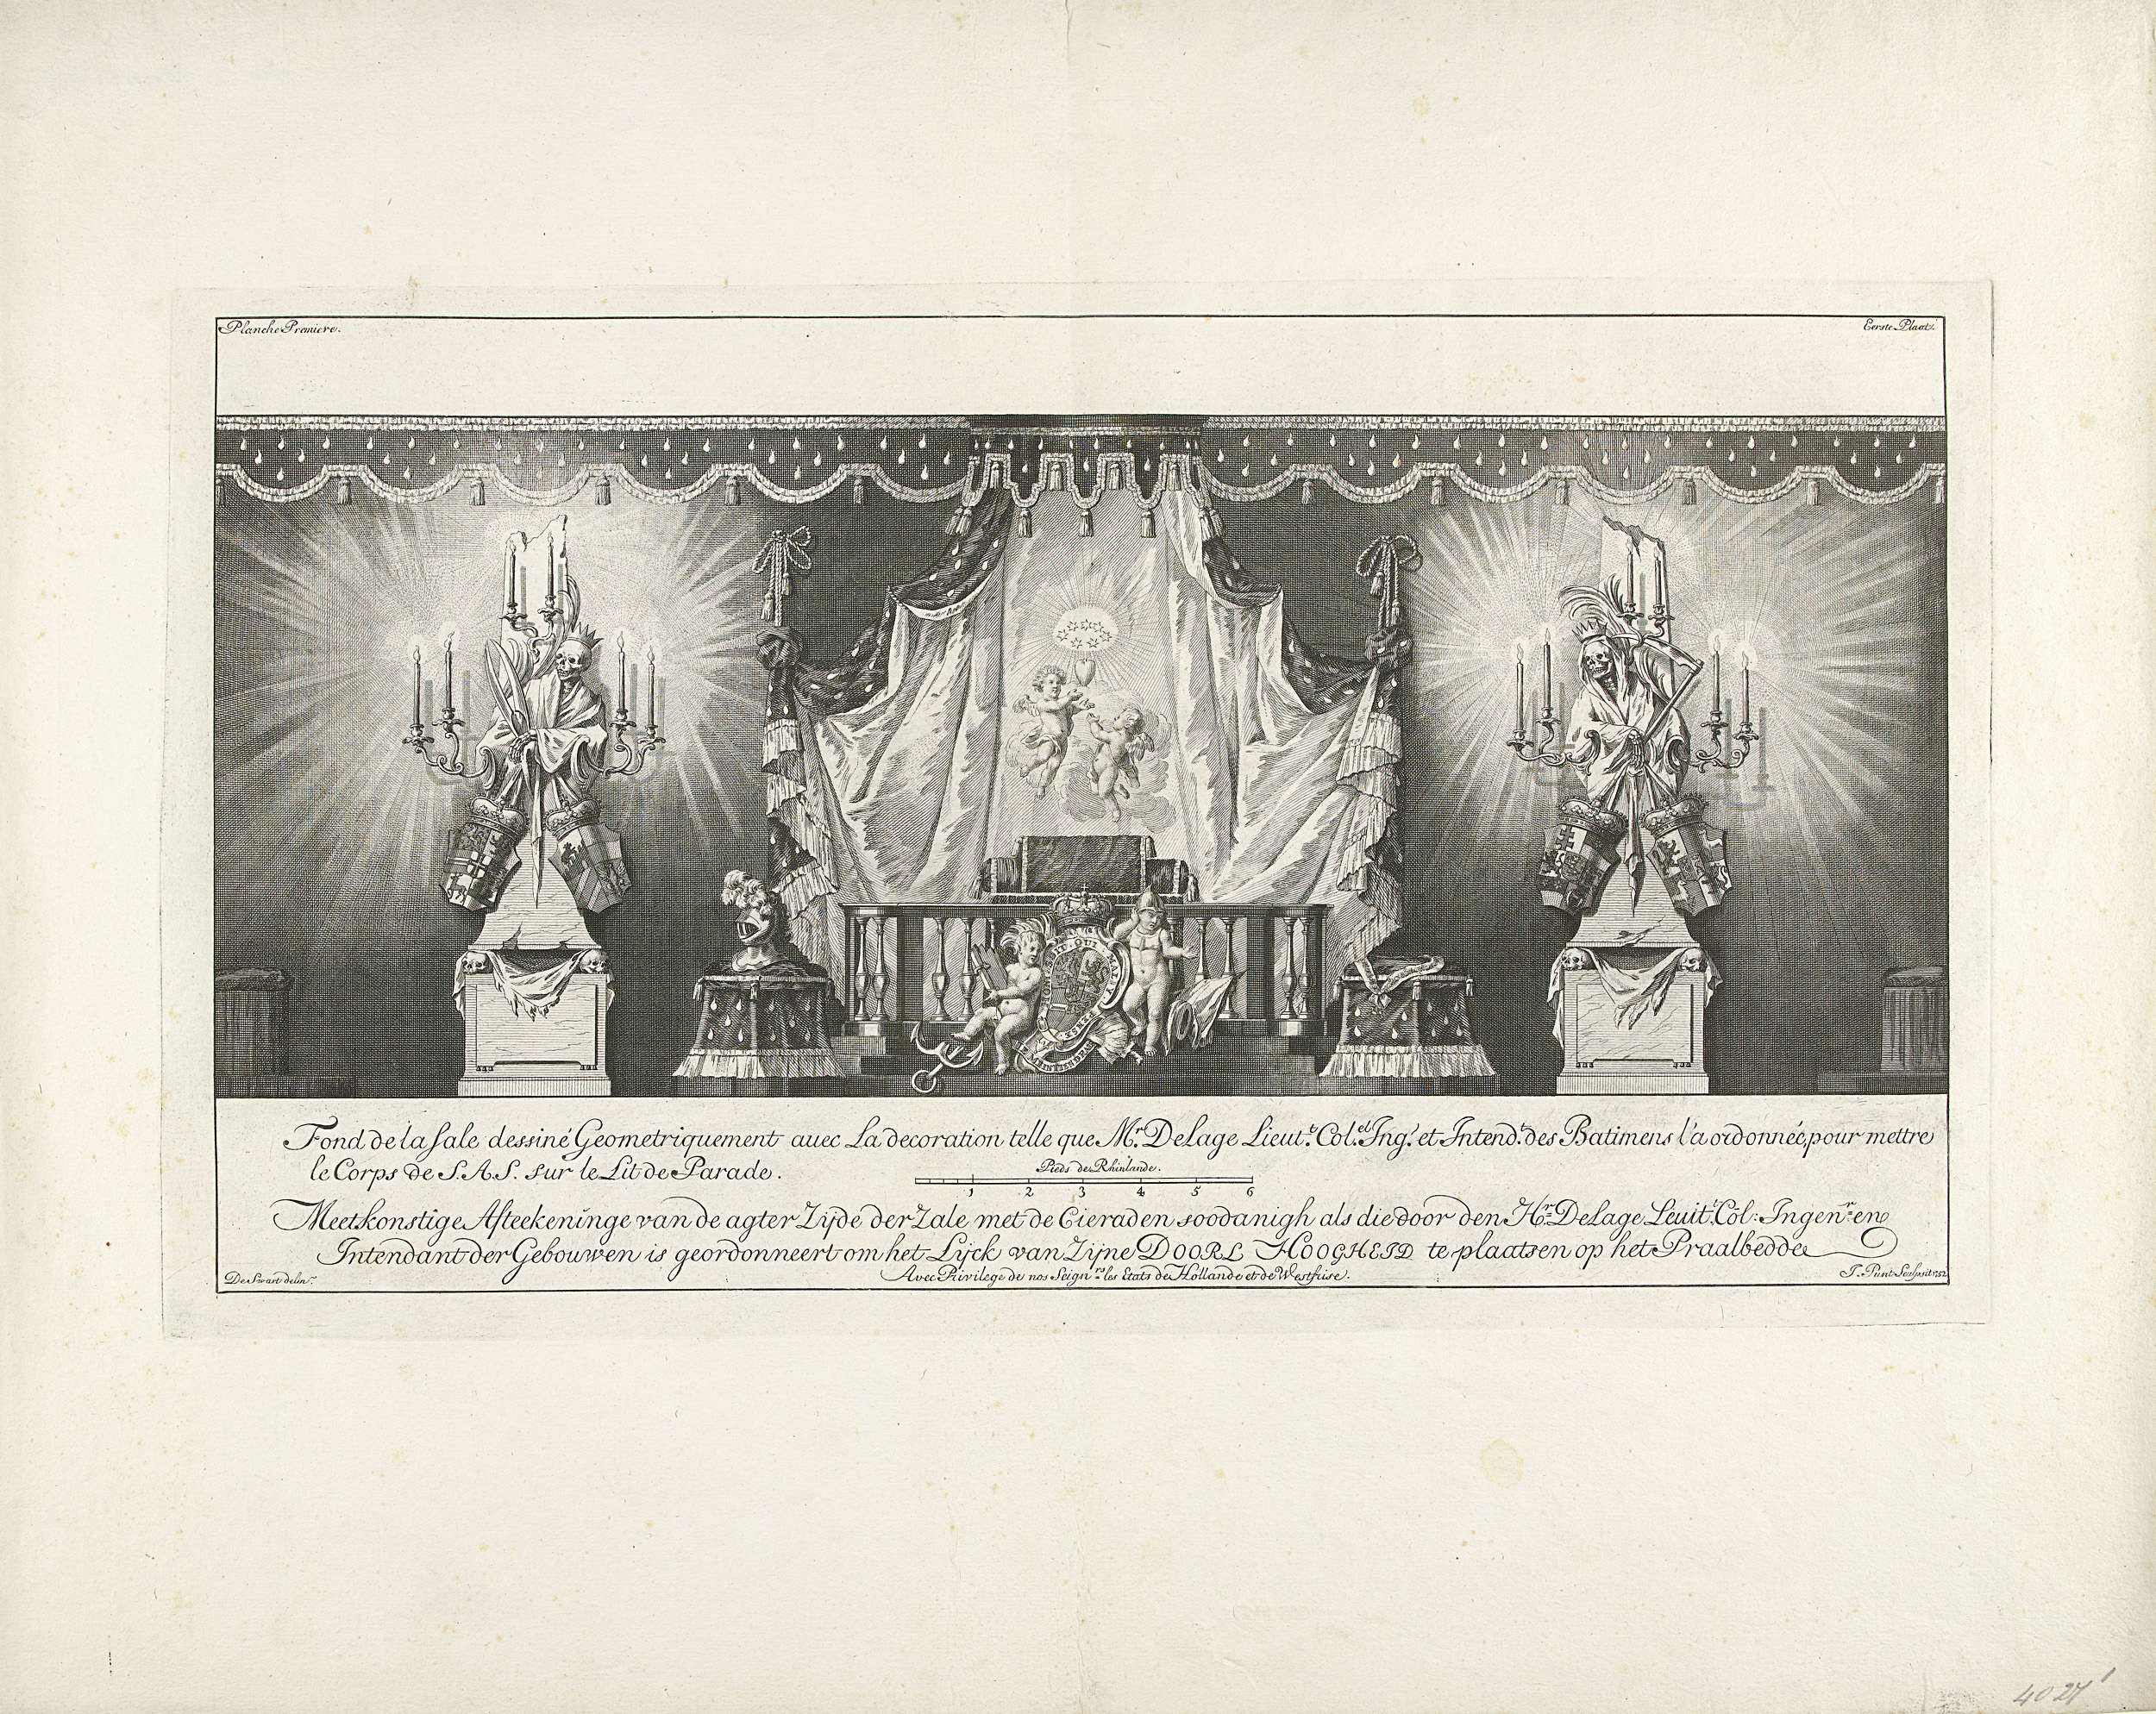 Planche Premiere.
Eerste Plaat.
HONI SOIT QUI MAL Y PENSE
MAINTIENDRAI
Fond de la Sale dessiné Geometriquement auec La decoration telle que Mr. DeLage Lieut.t Col.el Ing.r et Intend.t des Batimens l'a ordonnée, pour mettre
le Corps de S.A.S. sur le Lit de Parade.
Pieds de Rhinlande.
1 2 3 4 5 6
Meetkonstige Afteekeninge van de agter Zijde der Zale met de Cieraden soodanigh als die door den Hr. DeLage Leuit.t Col: Ingen.r en
Intendant der Gebouwen is geordonneert om het Lijck van Zijne DOORL HOOGHEID te plaatsen op het Praalbedde
Avec Privilege de nos Seign.rs les Etats de Hollande et de Westfrise.
De Swart delin.
J. Punt Sculpsit 1752
4027 1